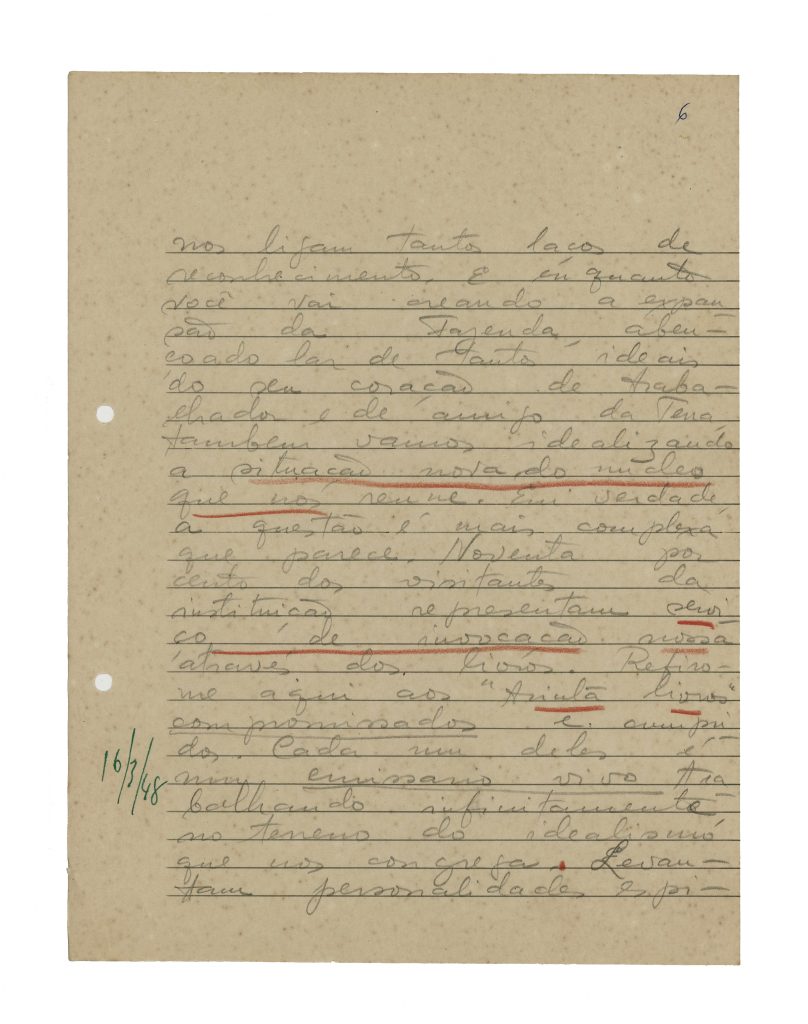 6
nos ligam tantos laços de
reconhecimento. E enquanto
você vai creando a expan
são da Fazenda, aben-
çoado lar de tantos ideais
do seu coração de traba-
lhador e de amigo da Terra,
tambem vamos idealizando
a situação nova do nucleo
que nos reune. Em verdade,
a questão é mais complexa
que parece. Noventa por
cento dos visitantes da
instituição representam servi
ço de invocação nossa
através dos livros. Refiro-
me aqui aos "trinta livros"
compromissados e cumpri
dos. Cada um deles é
um emissario vivo tra
balhando infinitamente
16/3/48
no terreno do idealismo
que nos congrega. Levan-
tam personalidades espi-